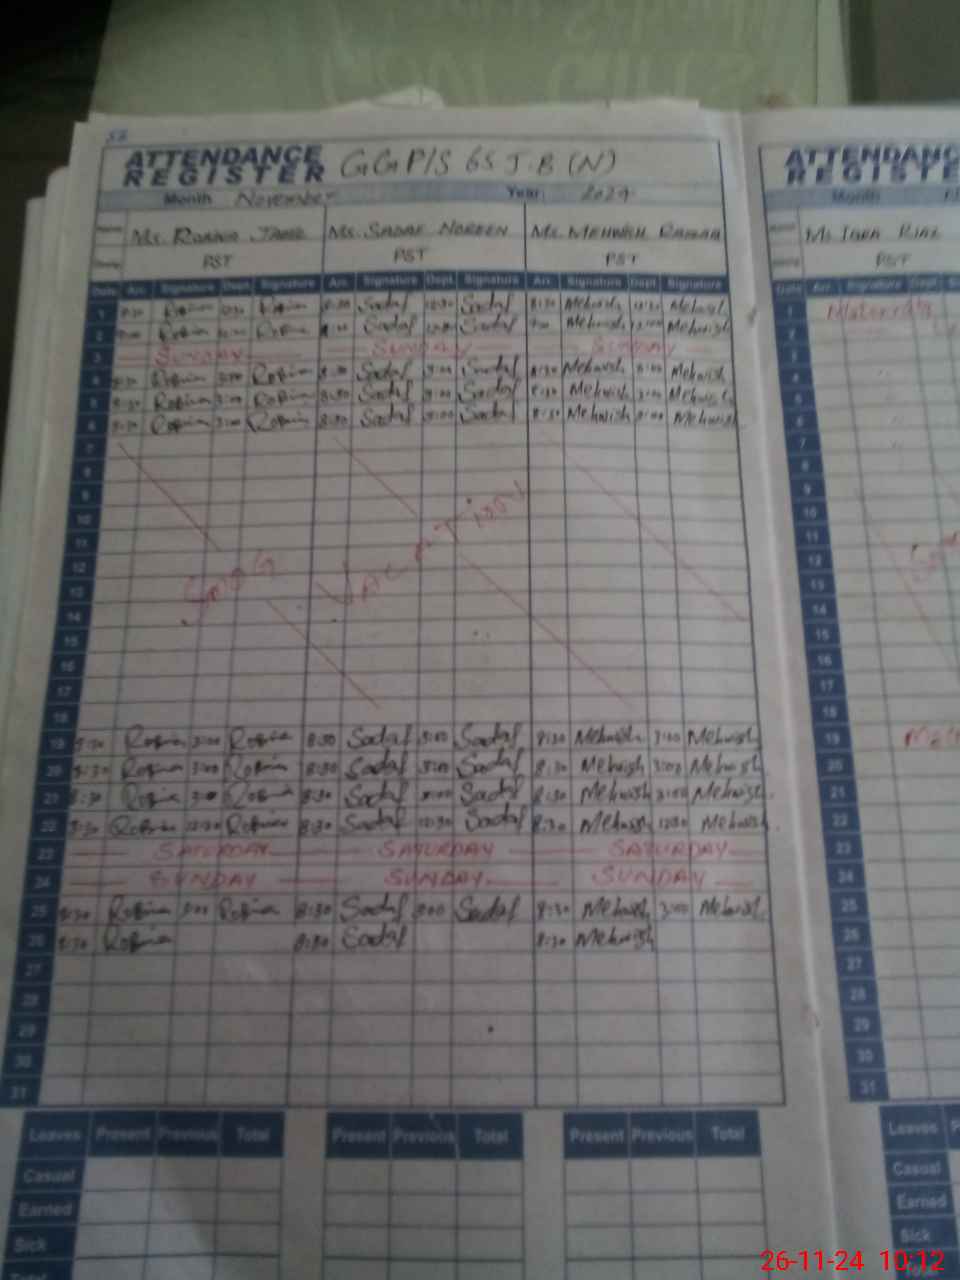 52
ATTENDANCE REGISTER GGP/S 65 J.B (N)
Month November Year 2024
Name Ms. Robina Ms. Sadaf Noreen Ms. Mehwish
PST PST PST
Date Arr. Signature Dept. Signature Arr. Signature Dept. Signature Arr. Signature Dept. Signature
1 8:30 Robina 12:30 Robina 8:30 Sadaf 12:30 Sadaf 8:30 Mehwish 12:30 Mehwish
2 Robina Robina Sadaf Sadaf Mehwish 12:00 Mehwish
3 SUNDAY SUNDAY SUNDAY
4 8:30 Robina 3:00 Robina 8:30 Sadaf 3:00 Sadaf 8:30 Mehwish 3:00 Mehwish
5 8:30 Robina 3:00 Robina 8:30 Sadaf 3:00 Sadaf 8:30 Mehwish 3:00 Mehwish
6 8:30 Robina 3:00 Robina 8:30 Sadaf 3:00 Sadaf 8:30 Mehwish 3:00 Mehwish
7
8
9
10
11
12
13 SMOG VACATION
14
15
16
17
18
19 8:30 Robina 3:00 Robina 8:30 Sadaf 3:00 Sadaf 8:30 Mehwish 3:00 Mehwish
20 8:30 Robina 3:00 Robina 8:30 Sadaf 3:00 Sadaf 8:30 Mehwish 3:00 Mehwish
21 8:30 Robina 3:00 Robina 8:30 Sadaf 3:00 Sadaf 8:30 Mehwish 3:00 Mehwish
22 8:30 Robina 12:30 Robina 8:30 Sadaf 12:30 Sadaf 8:30 Mehwish 12:30 Mehwish
23 SATURDAY SATURDAY SATURDAY
24 SUNDAY SUNDAY SUNDAY
25 8:30 Robina 3:00 Robina 8:30 Sadaf 3:00 Sadaf 8:30 Mehwish 3:00 Mehwish
26 8:30 Robina 8:30 Sadaf 8:30 Mehwish
27
28
29
30
31
Leaves Present Previous Total Present Previous Total Present Previous Total
Casual
Earned
Sick
Total
ATTENDANC
REGISTE
Month
Ms Iqra Riaz
PST
Date Arr. Signature Dept
1
2
3
4
5
6
7
8
9
10
11
12
13
14
15
16
17
18
19
20
21
22
23
24
25
26
27
28
29
30
31
Leaves P
Casual
Earned
Sick
26-11-24 10:12